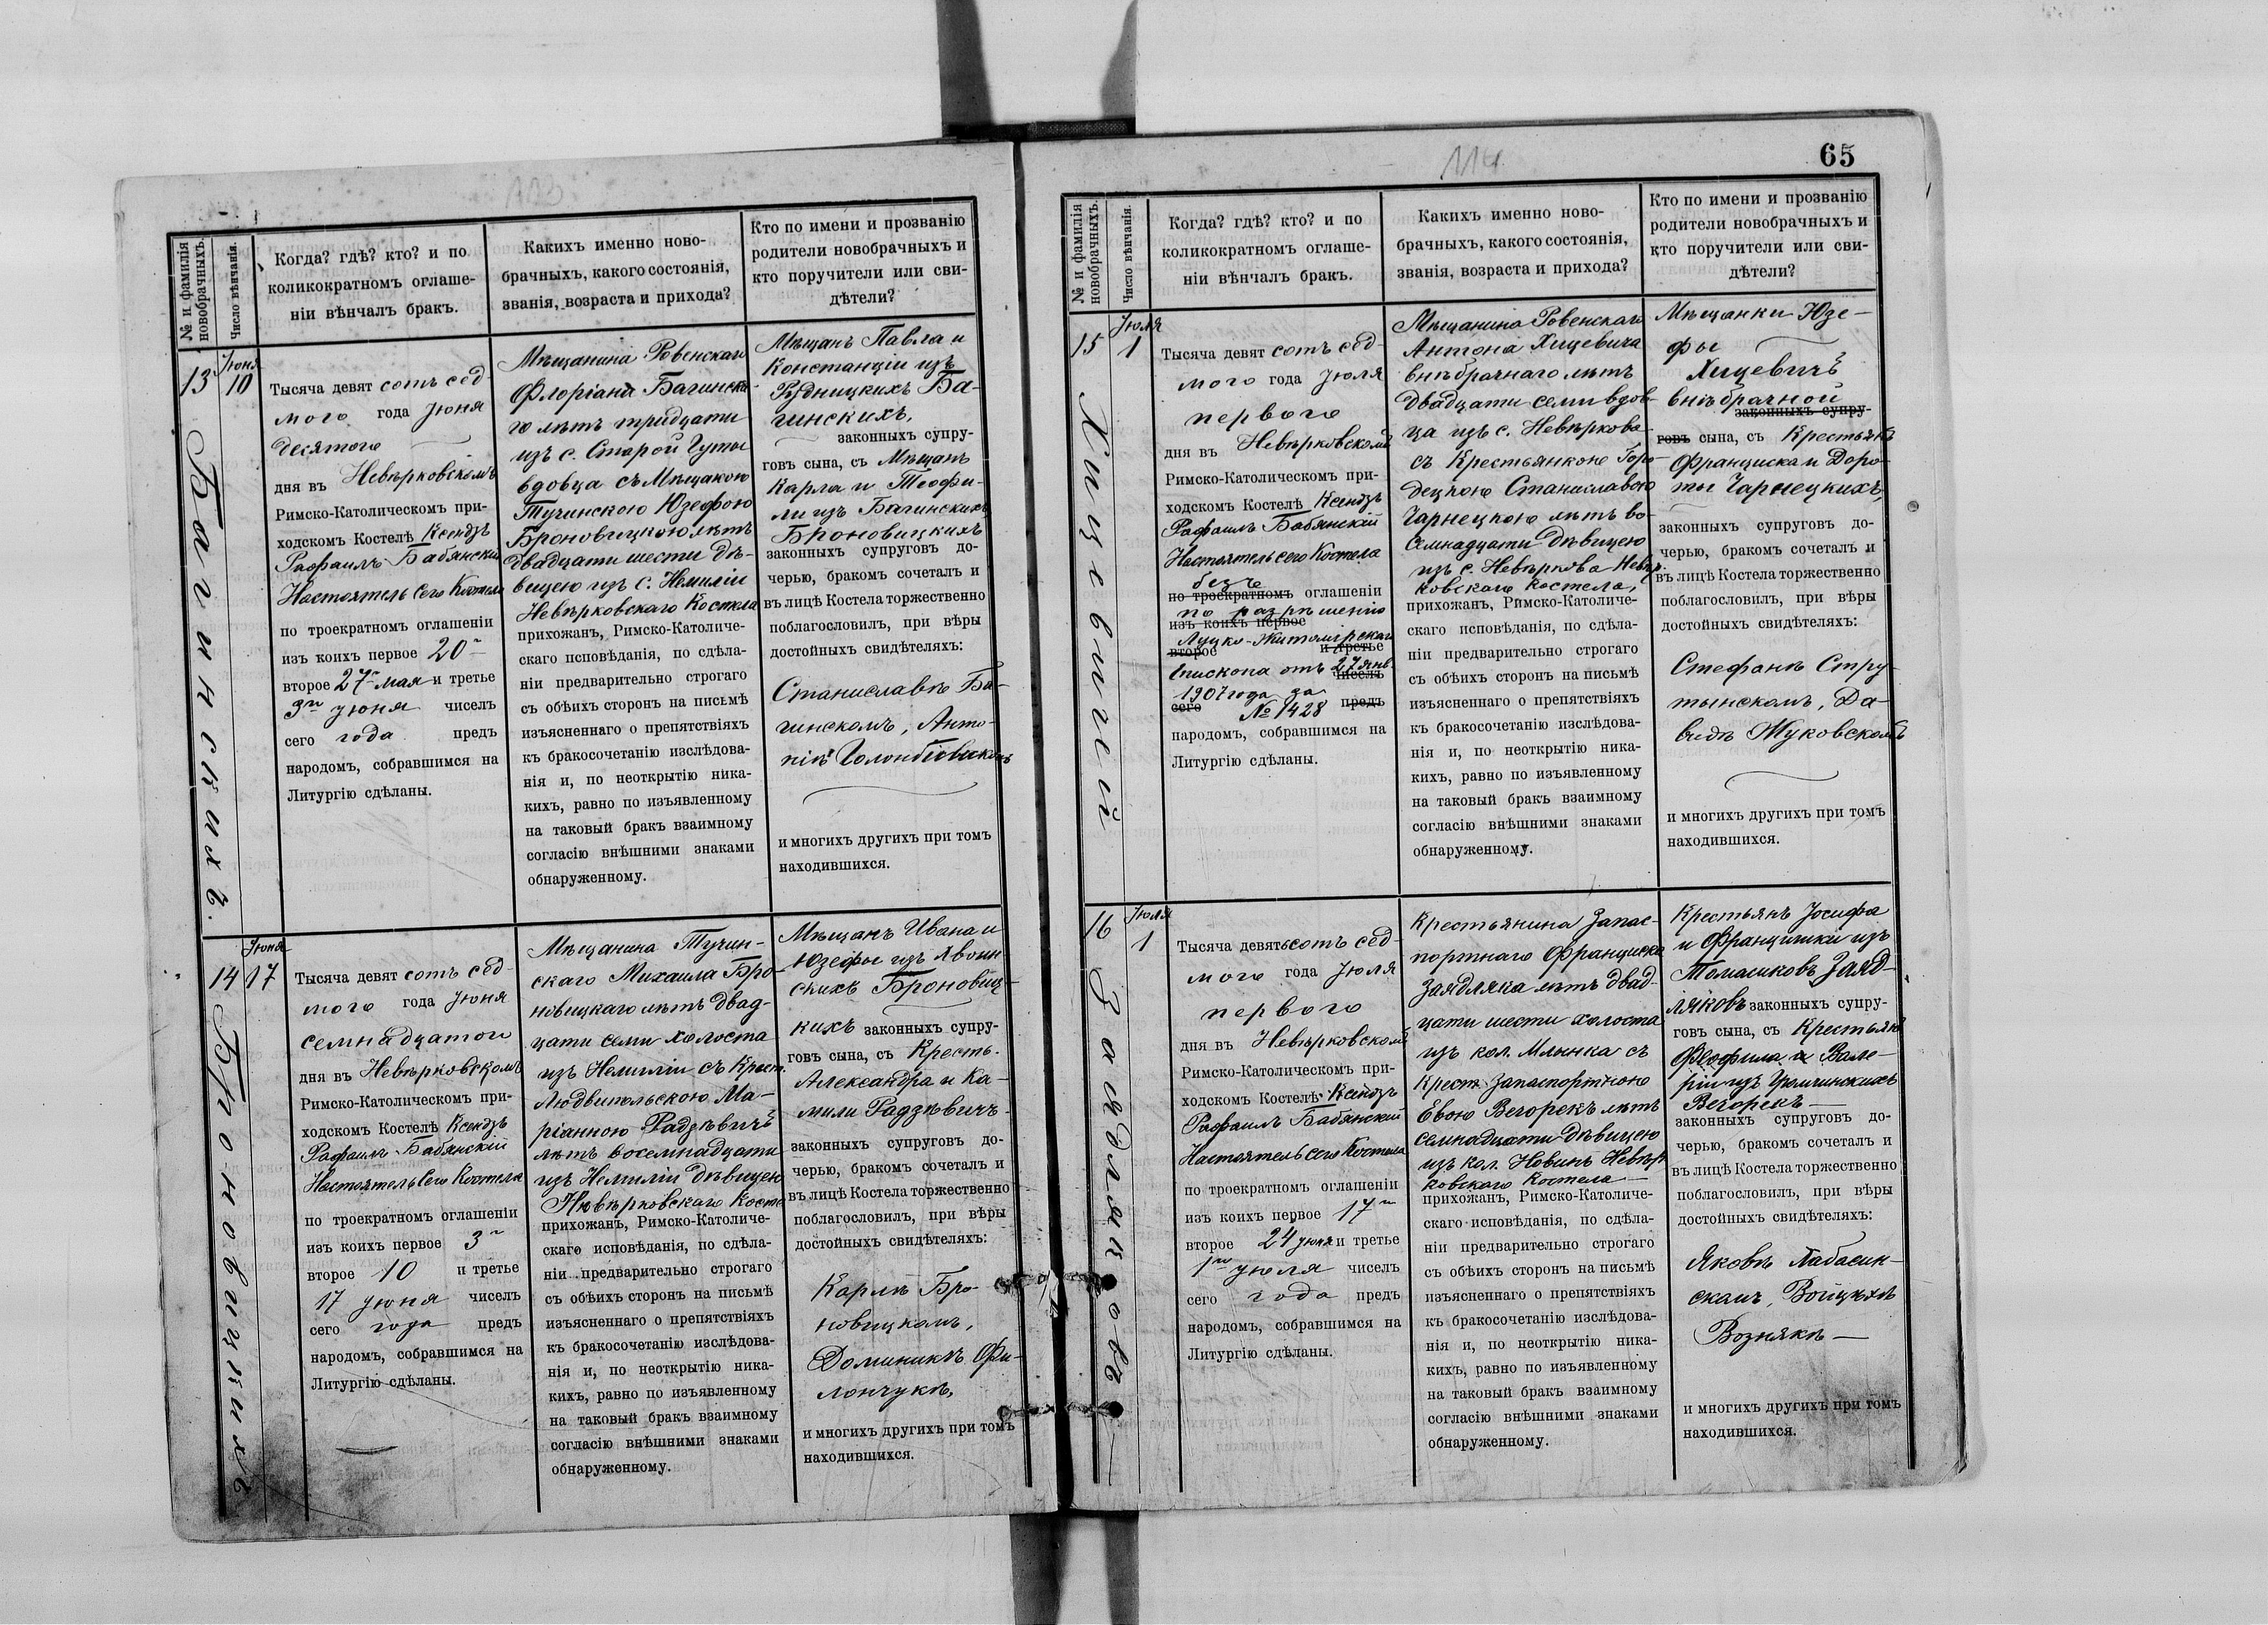 113
№ и фамилія новобрачныхъ.
Число вѣнчанія.
Когда? гдѣ? кто? и по
коликократномъ оглаше-
ніи вѣнчалъ бракъ.
Какихъ именно ново-
брачныхъ, какого состоянія,
званія, возраста и прихода?
Кто по имени и прозванію
родители новобрачныхъ и
кто поручители или сви-
дѣтели?
13
Багинскихъ.
Іюня
10
Тысяча девятсотъ сед-
мого года Іюня
десятого
дня въ Невѣрковскомъ
Римско-Католическомъ при-
ходскомъ Костелѣ Ксендзъ
Рафаилъ Бабянскій
Настоятель сего Костела
по троекратномъ оглашеніи
изъ коихъ первое 20-
второе 27- мая и третье
3го іюня чиселъ
сего года предъ
народомъ, собравшимся на
Литургію сдѣланы.
Мѣщанина Ровенскаго
Флоріана Багинска-
го лѣтъ тридцати
изъ с. Старой Гуты
вдовца съ Мѣщакою
Тучинскою Юзефою
Броновицкою лѣтъ
двадцати шести дѣ-
вицею изъ с. Немиліи
Невѣрковскаго Костела
прихожанъ, Римско-Католиче-
скаго исповѣданія, по сдѣла-
ніи предварительно строгаго
съ обѣихъ сторонъ на письмѣ
изъясненнаго о препятствіяхъ
къ бракосочетанію изслѣдова-
нія и, по неоткрытію ника-
кихъ, равно по изъявленному
на таковый бракъ взаимному
согласію внѣшними знаками
обнаруженному.
Мѣщанъ Павла и
Констанціи изъ
Рудницкихъ Ба-
гинскихъ,
законныхъ супру-
говъ сына, съ Мѣщанъ
Карла и Теофи-
ли изъ Багинскихъ
Броновицкихъ
законныхъ супруговъ до-
черью, бракомъ сочеталъ и
въ лицѣ Костела торжественно
поблагословилъ, при вѣры
достойныхъ свидѣтеляхъ:
Станиславѣ Ба-
гинскомъ, Анто-
ніѣ
и многихъ другихъ при томъ
находившихся.
14
Броновицкихъ
Іюня
17
Тысяча девятсотъ сед-
мого года Іюня
семнадцатого
дня въ Невѣрковскомъ
Римско-Католическомъ при-
ходскомъ Костелѣ Ксендзъ
Рафаилъ Бабянскій
Настоятель сего Костела
по троекратномъ оглашеніи
изъ коихъ первое 3-
второе 10 и третье
17 іюня чиселъ
сего года предъ
народомъ, собравшимся на
Литургію сдѣланы.
Мѣщанина Тучин-
скаго Михаила Бро-
новицкаго лѣтъ двад-
цати семи холоста
изъ Немиліи съ Крест.
Людвипольскою Ма-
ріанною Радзѣвичъ
лѣтъ восемнадцати
изъ Немиліи дѣвицею
Невѣрковскаго Косте
прихожанъ, Римско-Католиче-
скаго исповѣданія, по сдѣла-
ніи предварительно строгаго
съ обѣихъ сторонъ на письмѣ
изъясненнаго о препятствіяхъ
къ бракосочетанію изслѣдова-
нія и, по неоткрытію ника-
кихъ, равно по изъявленному
на таковый бракъ взаимному
согласію внѣшними знаками
обнаруженному.
Мѣщанъ Ивана и
Юзефы изъ Явоин
скихъ Броновиц-
кихъ законныхъ супру-
говъ сына, съ Кресть-
Александра и Ка-
мили Радзѣвичъ-
законныхъ супруговъ до-
черью, бракомъ сочеталъ и
въ лицѣ Костела торжественно
поблагословилъ, при вѣры
достойныхъ свидѣтеляхъ:
Карлѣ Бро-
новицкомъ,
Доминикѣ Фи-
лончукѣ,
и многихъ другихъ при томъ
находившихся.
114
65
№ и фамилія новобрачныхъ.
Число вѣнчанія.
Когда? гдѣ? кто? и по
коликократномъ оглаше-
ніи вѣнчалъ бракъ.
Какихъ именно ново-
брачныхъ, какого состоянія,
званія, возраста и прихода?
Кто по имени и прозванію
родители новобрачныхъ и
кто поручители или сви-
дѣтели?
15
Хицевичей
Іюля
1
Тысяча девятсотъ сед-
мого года Іюля
первого
дня въ Невѣрковскомъ
Римско-Католическомъ при-
ходскомъ Костелѣ Ксендзъ
Рафаилъ Бабянскій
Настоятель сего Костела
безъ
по троекратномъ оглашеніи
по разрѣшенію
изъ коихъ первое
Луцко-Житомірскаго
второе и третье
Епископа отъ 27 янв.
чиселъ
1907 года за
сего № 1428 предъ
народомъ, собравшимся на
Литургію сдѣланы.
Мѣщанина Ровенскаго
Антона Хицевича
внѣбрачнаго лѣтъ
двадцати семи вдов-
ца изъ с. Невѣркова
съ Крестьянкою Горо-
децкою Станиславою
Чарнецкою лѣтъ во-
семнадцати дѣвицею
изъ с. Невѣркова Невѣр-
ковскаго Костела,
прихожанъ, Римско-Католиче-
скаго исповѣданія, по сдѣла-
ніи предварительно строгаго
съ обѣихъ сторонъ на письмѣ
изъясненнаго о препятствіяхъ
къ бракосочетанію изслѣдова-
нія и, по неоткрытію ника-
кихъ, равно по изъявленному
на таковый бракъ взаимному
согласію внѣшними знаками
обнаруженному.
Мѣщанки Юзе-
фы
Хицевичъ
внѣбрачной
законныхъ супру-
говъ сына, съ Крестьянъ
Франциска и Доро-
ты Чарнецкихъ,
законныхъ супруговъ до-
черью, бракомъ сочеталъ и
въ лицѣ Костела торжественно
поблагословилъ, при вѣры
достойныхъ свидѣтеляхъ:
Стефанѣ Стру-
тынскомъ, Да-
видѣ Жуковскомъ
и многихъ другихъ при томъ
находившихся.
16
Заядляковъ
Іюля
1
Тысяча девятьсотъ сед-
мого года Іюля
первого
дня въ Невѣрковскомъ
Римско-Католическомъ при-
ходскомъ Костелѣ Ксендзъ
Рафаилъ Бабянскій
Настоятель сего Костела
по троекратномъ оглашеніи
изъ коихъ первое 17го
второе 24 іюня и третье
1го іюля чиселъ
сего года предъ
народомъ, собравшимся на
Литургію сдѣланы.
Крестьянина Запас-
портнаго Франциска
Заядляка лѣтъ двад-
цати шести холоста
изъ кол. Млынка съ
Крест. Запаспортною
Евою Вечорекъ лѣтъ
семнадцати дѣвицею
изъ кол. Новинъ Невѣр
ковскаго Костела
прихожанъ, Римско-Католиче-
скаго исповѣданія, по сдѣла-
ніи предварительно строгаго
съ обѣихъ сторонъ на письмѣ
изъясненнаго о препятствіяхъ
къ бракосочетанію изслѣдова-
нія и, по неоткрытію ника-
кихъ, равно по изъявленному
на таковый бракъ взаимному
согласію внѣшними знаками
обнаруженному.
Крестьянъ Іосифа
и Францишки изъ
Томасиковъ Заяд-
ляковъ законныхъ супру-
говъ сына, съ Крестьян
Феофила и Вале-
ріи изъ
Вечорекъ
законныхъ супруговъ до-
черью, бракомъ сочеталъ и
въ лицѣ Костела торжественно
поблагословилъ, при вѣры
достойныхъ свидѣтеляхъ:
Яковѣ Лабасин-
скомъ, Войцѣхѣ
Вознякѣ
и многихъ другихъ при томъ
находившихся.